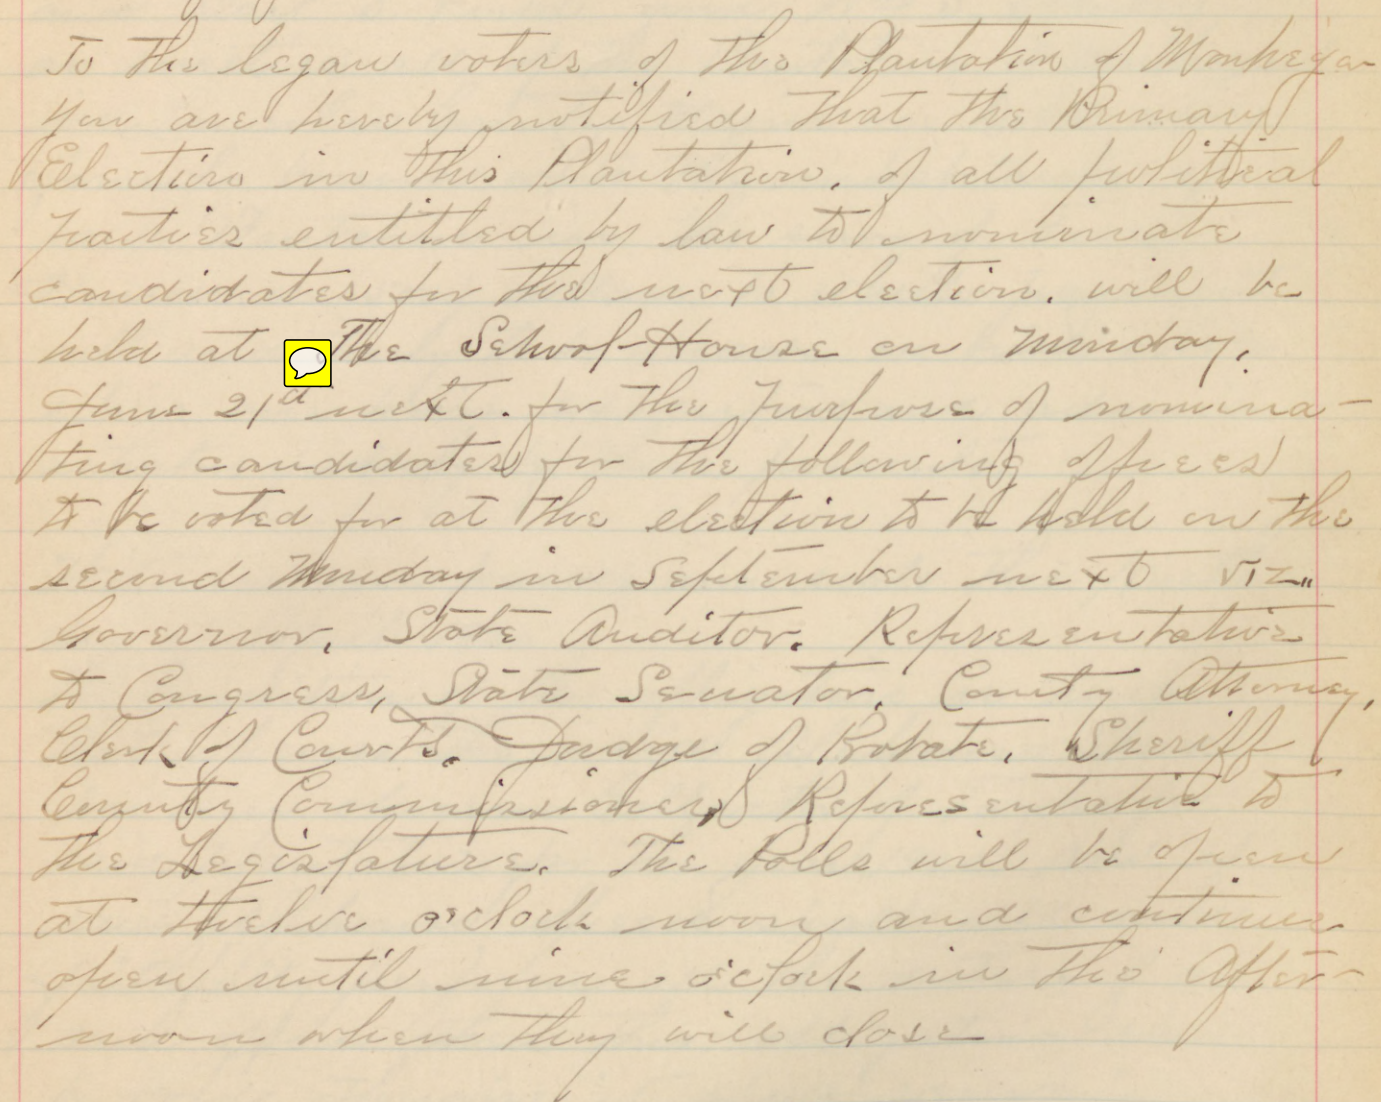 To the legau voters of the Plantation of Monhegan
You are hereby notified that the Primary
Election in this Plantation, of all political
parties entitled by law to nominate
candidates for the next election, will be
held at The School-House on Monday,
June 21d next. for the Purpose of nomina-
ting candidates for the following offices
to be voted for at the election to be held on the
second Monday in September next viz..
Governor, State Auditor, Representative
to Congress, State Senator, County Attorney,
Clerk of Courts, Judge of Probate, Sheriff
County Commissioner, Representative to
the Legislature. The Polls will be open
at twelve o'clock noon and continue
open until nine o'clock in the After-
noon when they will close